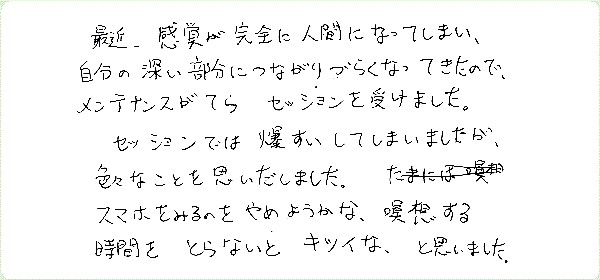 最近、感覚が完全に人間になってしまい、
自分の深い部分につながりづらくなってきたので、
メンテナンスがてら セッションを受けました。
セッションでは 爆すいしてしまいましたが、
色々なことを思いだしました。 たまには瞑想
スマホをみるのをやめようかな、瞑想する
時間を とらないと キツイな、と思いました。